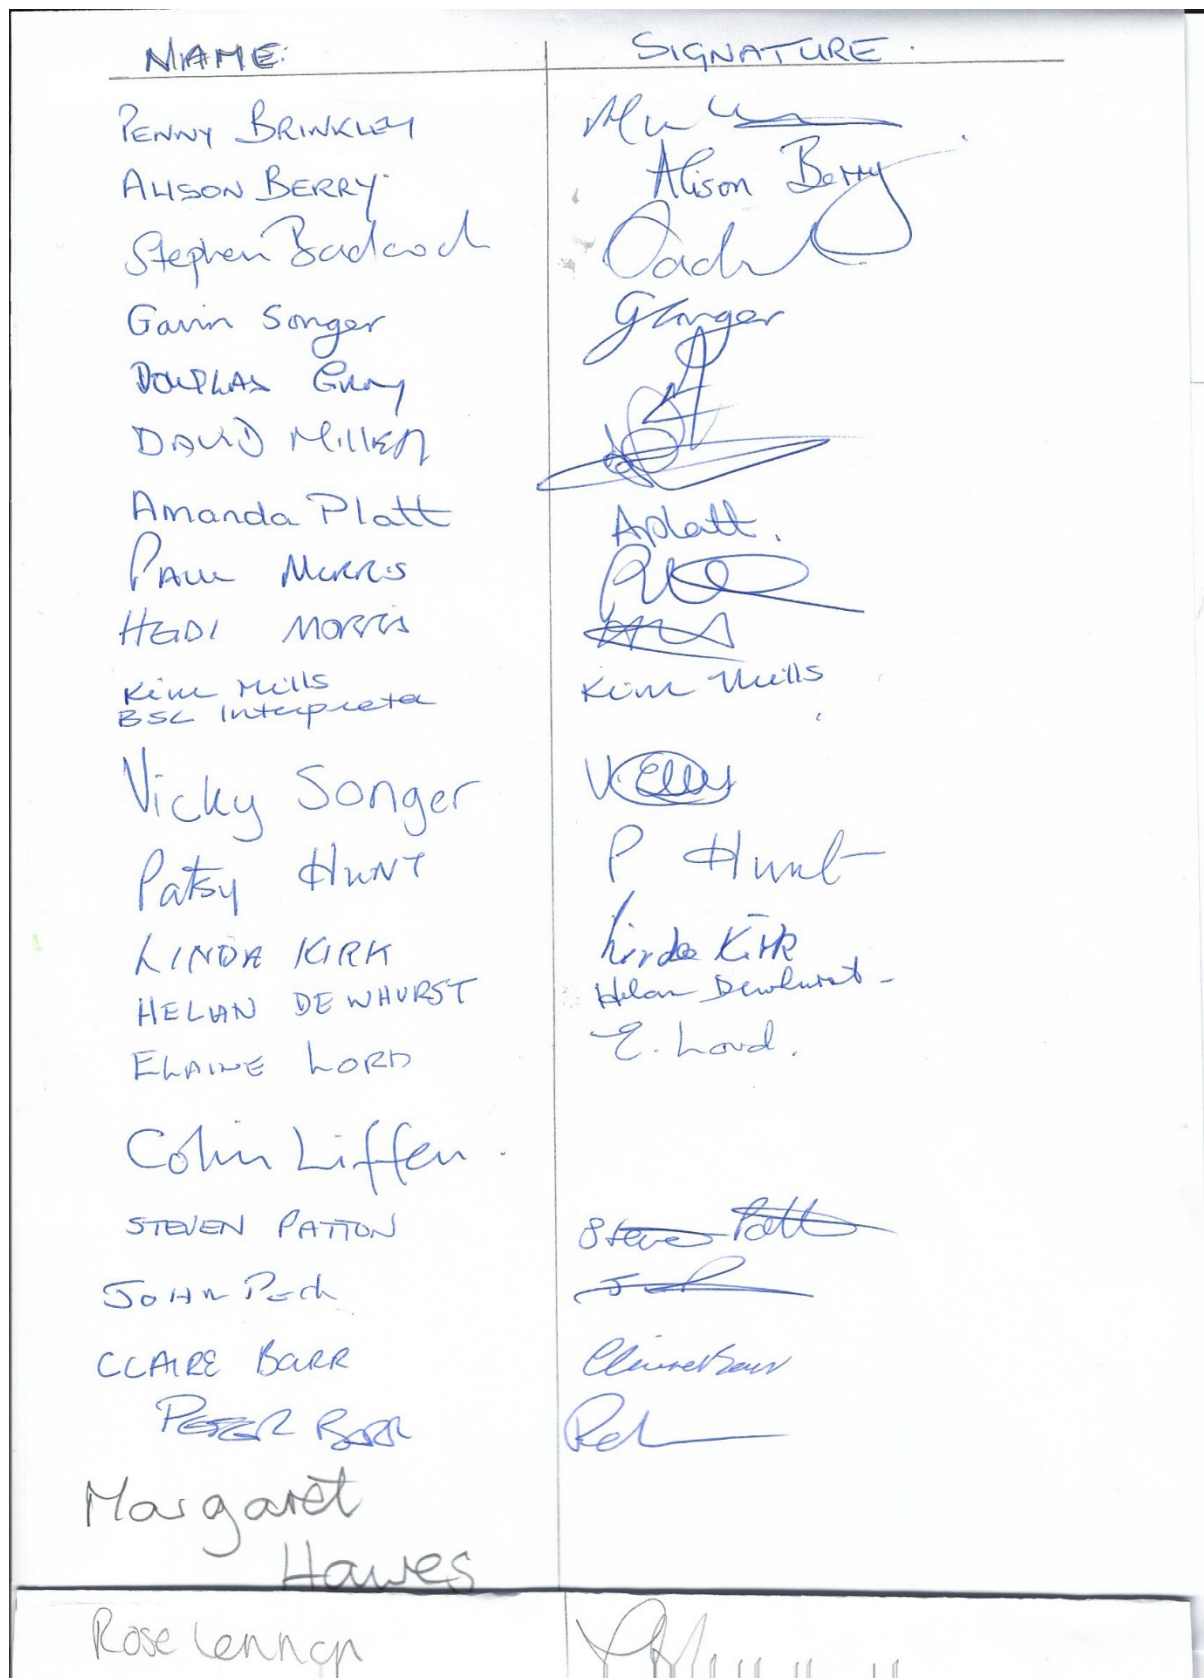 NAME: SIGNATURE.
PENNY BRINKLEY
ALISON BERRY. Alison Berry
Stephen Badcock
Gavin Songer GSonger
DOUGLAS Gray
DAVID MILLER
Amanda Platt APlatt.
PAUL MORRIS
HEIDI MORRIS
Kim Mills Kim Mills
BSC Interpreter
Vicky Songer
Patsy HUNT P Hunt
LINDA KIRK Linda Kirk
HELAN DEWHURST Helan Dewhurst
ELAINE LORD E. Lord.
Colin Liffen.
STEVEN PATTON Steven Patt
JOHN Peck
CLAIRE BARR Claire Barr
PETER BARR
Margaret
Hawes
Rose Lennan